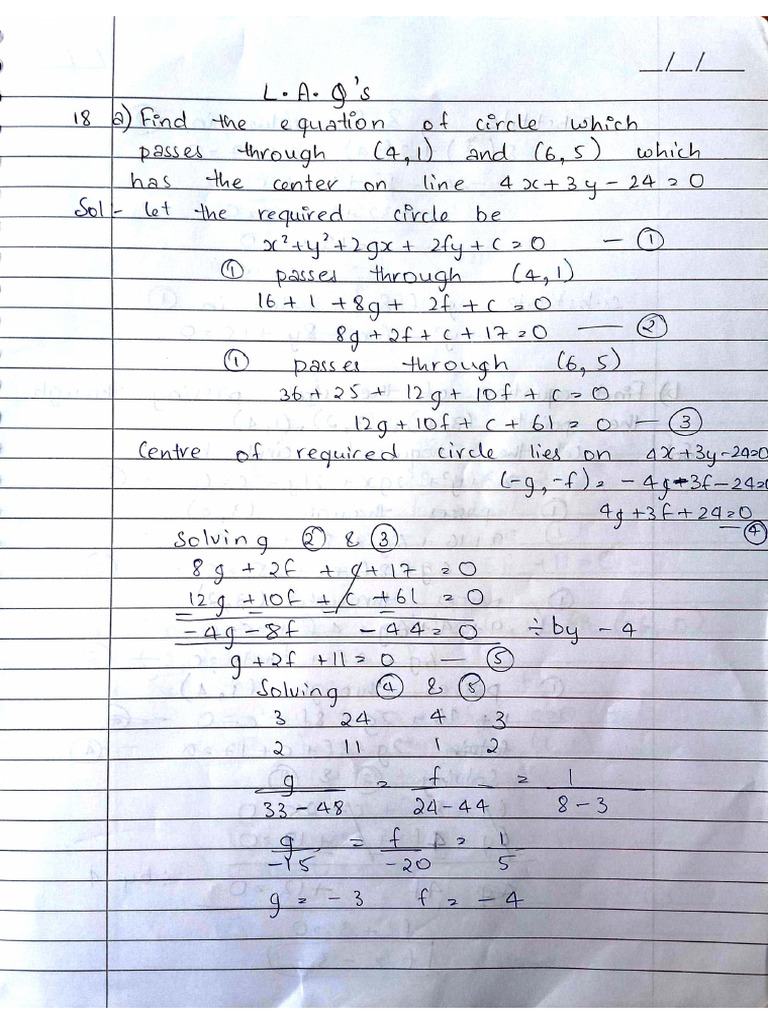 _/_/__
L.A.Q's
18 a) Find the equation of circle which
passes through (4,1) and (6,5) which
has the center on line 4x+3y-24=0
Sol:- Let the required circle be
x²+y²+2gx+2fy+c=0 — ①
① passes through (4,1)
16+1+8g+2f+c=0
8g+2f+c+17=0 — ②
① passes through (6,5)
36+25+12g+10f+c=0
12g+10f+c+61=0 — ③
Centre of required circle lies on 4x+3y-24=0
(-g,-f)=-4g-3f-24=0
4g+3f+24=0
— ④
Solving ② & ③
8g+2f+c+17=0
12g+10f+c+61=0
-4g-8f -44=0 ÷by -4
g+2f+11=0 — ⑤
Solving ④ & ⑤
3 24 4 3
2 11 1 2
g = f = 1
33-48 24-44 8-3
g = f = 1
-15 -20 5
g=-3 f=-4